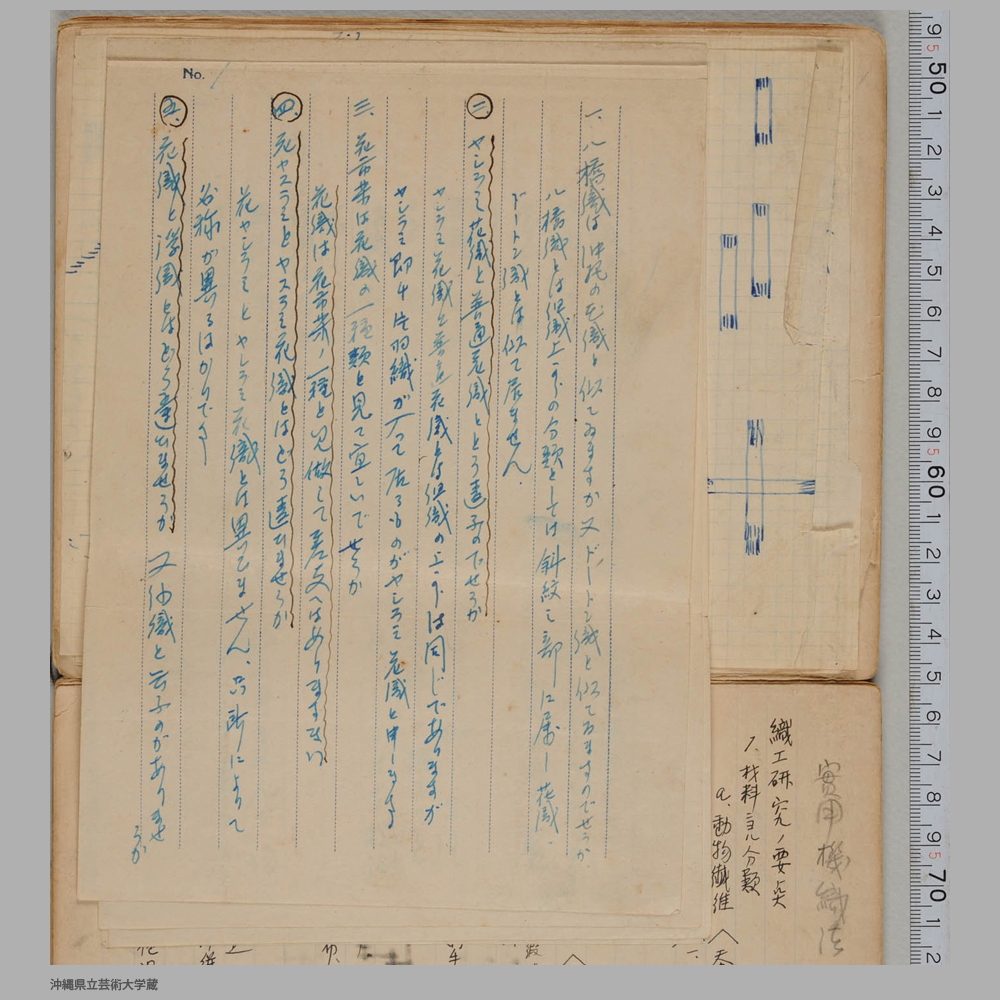 No.
一、八橋織は沖縄の花織と似てゐますか又ドートン織と似てゐますのでせうか。
八橋織とは組織上からの分類としては斜紋ミ部に属し花織、
ドートン織とは似て居ません。
二、ヤシラミ花織と普通花織とどう違ふのでせうか
ヤシラミ花織と普通花織とは組織の上からは同じでありますが
ヤシラミ即チ片羽織が入って居るものがヤシラミ花織と申します
三、花市松は花織の一種類と見て宜しいでせうか
花織は花市松ノ一種と見做して差支へはありますまい
四、花ヤスラミとヤスラミ花織とはどう違ひませうか
花ヤシラミとヤシラミ花織とは異ってません、只所によって
名称が異るばかりです
五、花織と浮織とはどう違ひませうか 又仰織と云ふのがありませ
うか
實用機織法
織工研究ノ要点
1、材料ヨル分類
a、動物纖維
沖縄県立芸術大学蔵